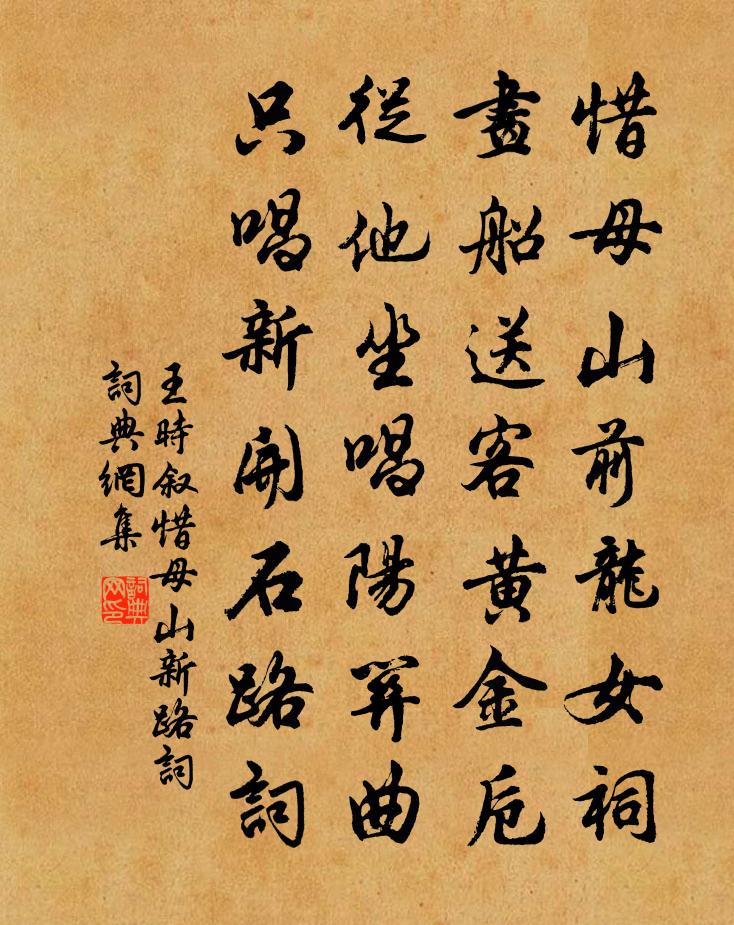 惜母山前龍女祠
畫船送客黄金卮
從他坐唱陽關曲
只唱新開石路詞
王時叙惜母山新路詞
詞典網集
詞典网印